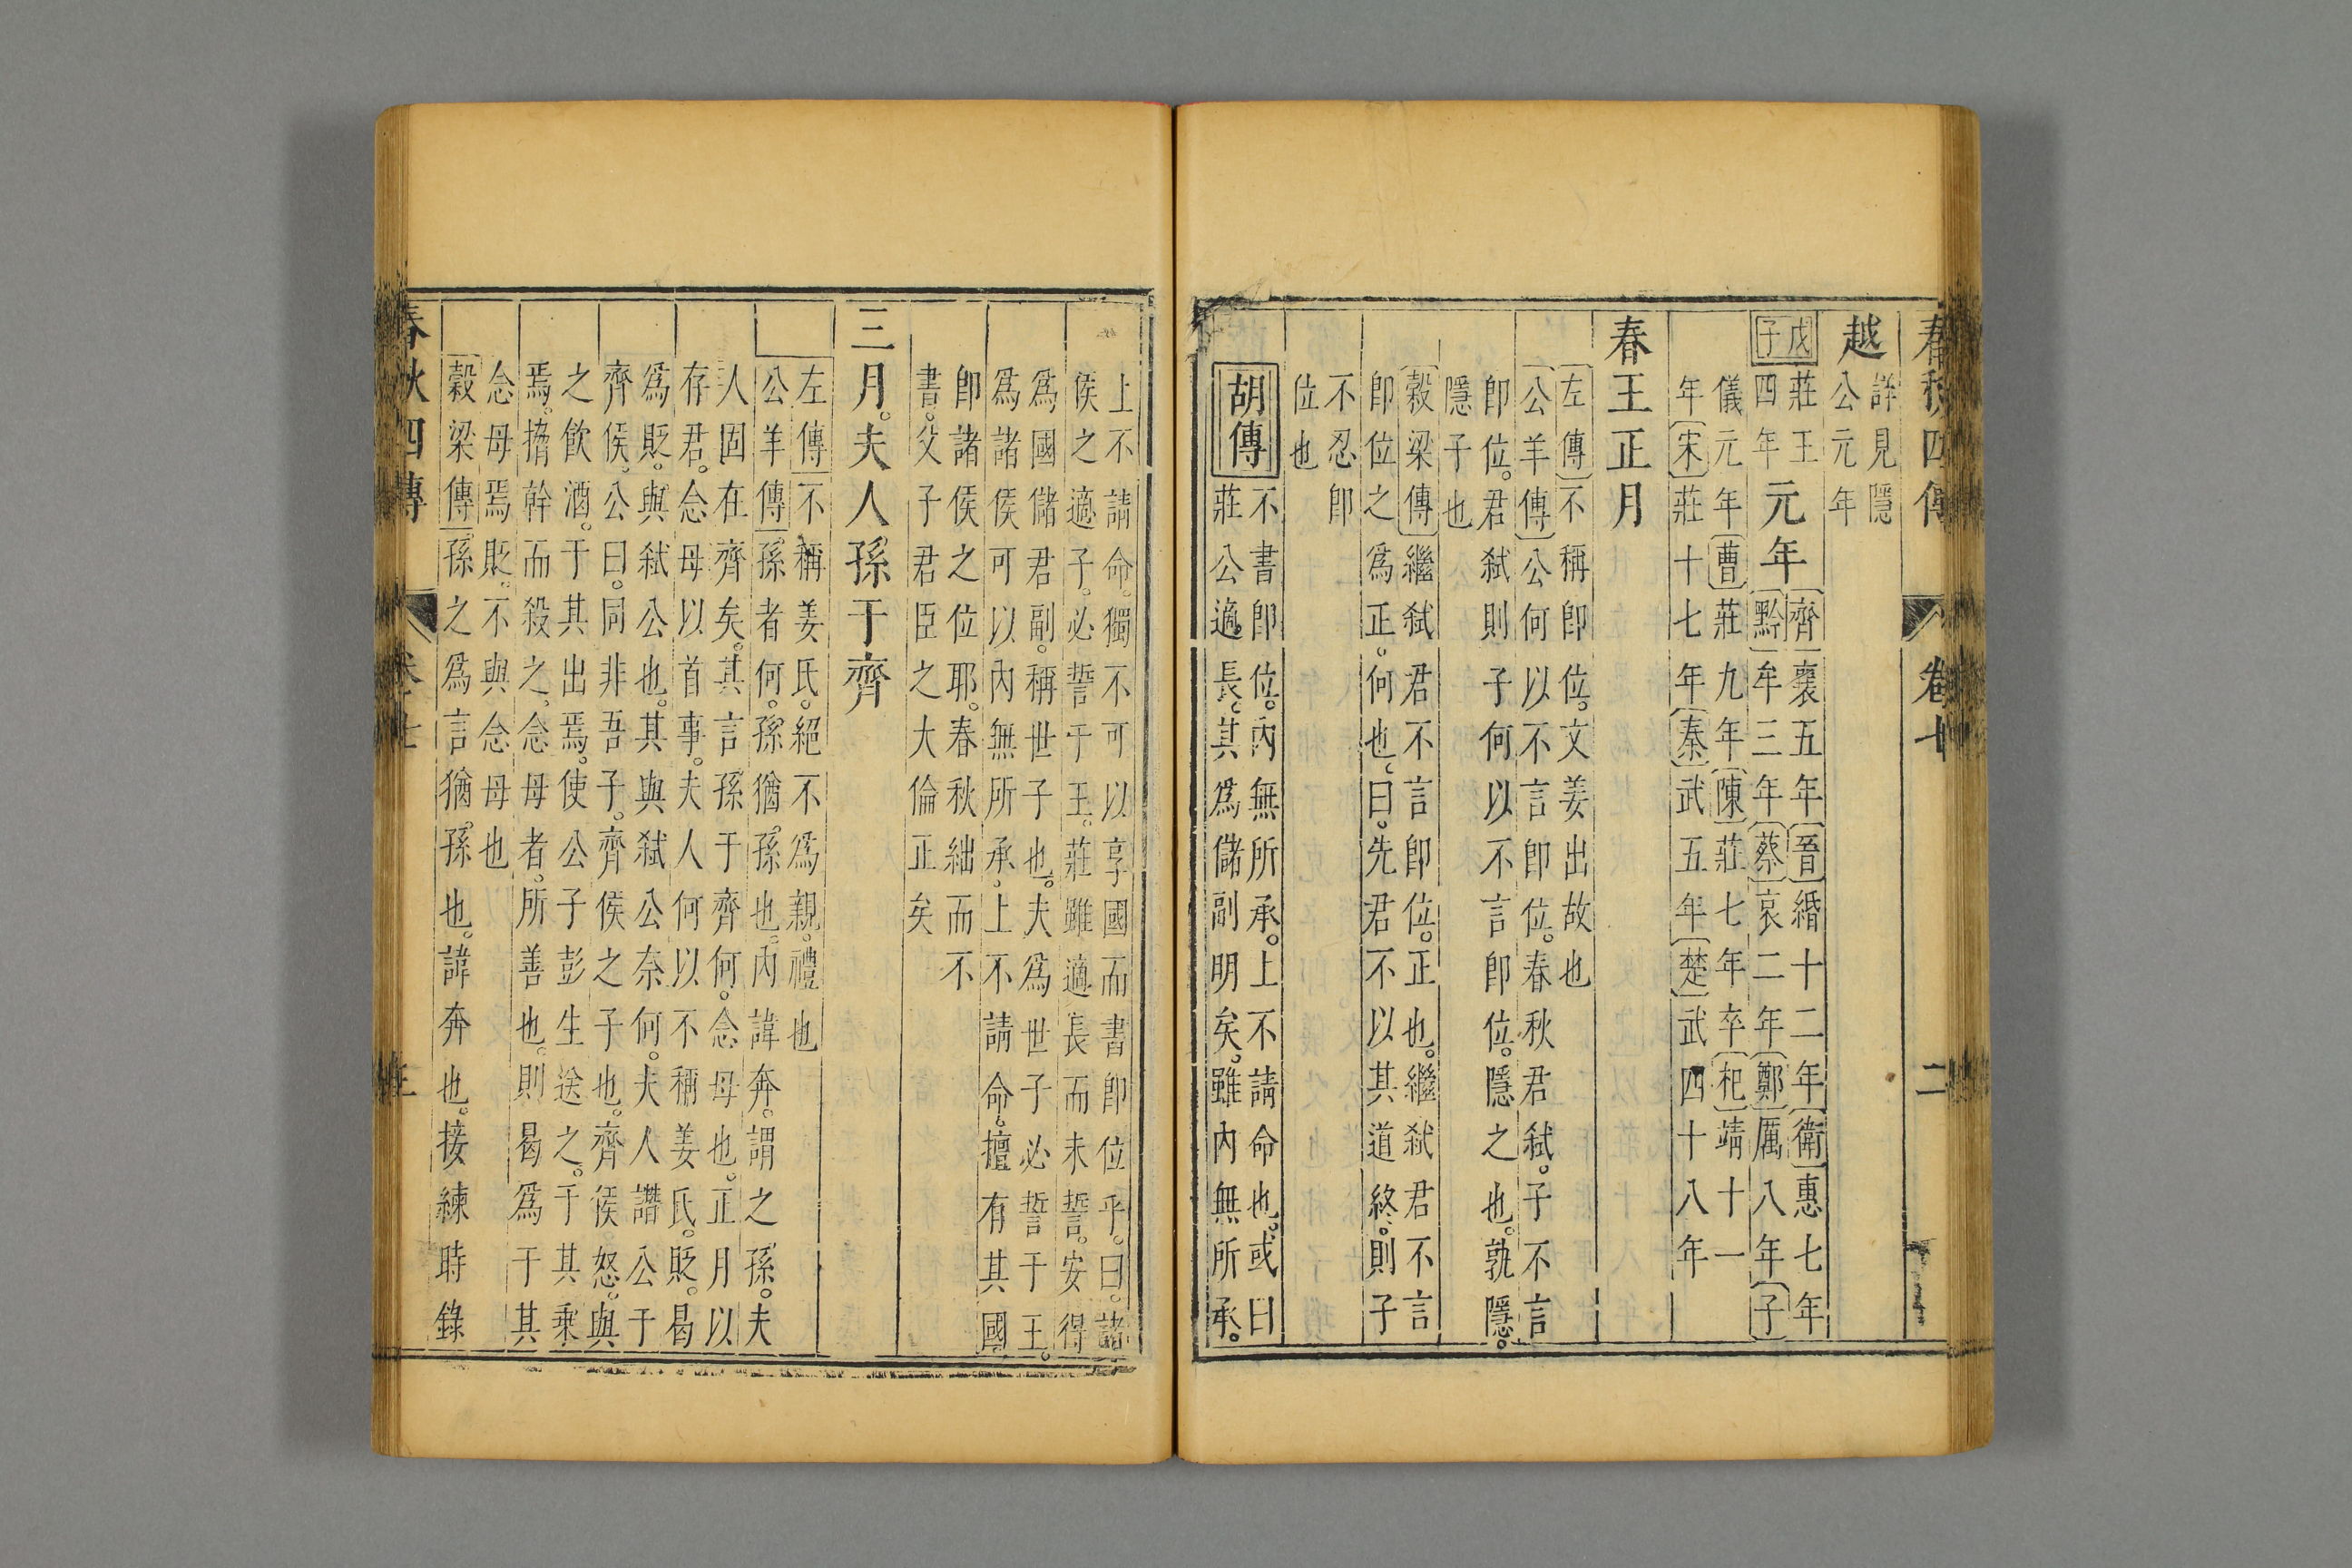 春秋四傳 卷十 二
越 詳見隱
公元年
戊子 莊王
四年 元年 齊襄五年晉緡十二年衛惠七年
黔牟三年蔡哀二年鄭厲八年子
儀元年曹莊九年陳莊七年卒杞靖十一
年宋莊十七年秦武五年楚武四十八年
春王正月
左傳不稱卽位。文姜出故也
公羊傳公何以不言卽位。春秋君弒。子不言
卽位。君弒則子何以不言卽位。隱之也。孰隱。
隱子也
穀梁傳繼弒君不言卽位。正也。繼弒君不言
卽位之爲正。何也。曰。先君不以其道終。則子
不忍卽
位也
胡傳 不書卽位。內無所承。上不請命也。或曰
莊公適長。其爲儲副明矣。雖內無所承。
上不請命。獨不可以享國而書卽位乎。曰。諸
侯之適子。必誓于王。莊雖適長而未誓。安得
爲國儲君副。稱世子也。夫爲世子必誓于王。
爲諸侯可以內無所承。上不請命。擅有其國
卽諸侯之位耶。春秋絀而不
書。父子君臣之大倫正矣
三月。夫人孫于齊
左傳不稱姜氏。絕不爲親。禮也
公羊傳孫者何。孫猶孫也。內諱奔。謂之孫。夫
人固在齊矣。其言孫于齊何。念母也。正月以
存君。念母以首事。夫人何以不稱姜氏。貶。曷
爲貶。與弒公也。其與弒公奈何。夫人譖公于
齊侯。公曰。同非吾子。齊侯之子也。齊侯怒。與
之飲酒。于其出焉。使公子彭生送之。于其乘
焉。搚幹而殺之。念母者。所善也。則曷爲于其
念母焉貶。不與念母也
穀梁傳孫之爲言猶孫也。諱奔也。接練時錄
春秋四傳